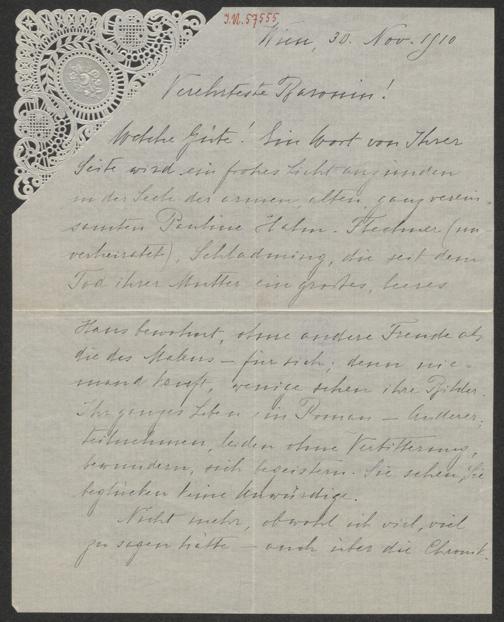 I.N. 57555
Wien, 30. Nov. 1910
Verehrteste Baronin!
Welche Güte! Ein Wort von Ihrer
Seite wird ein frohes Licht anzünden
in der Seele der armen, alten, ganz verein-
samten Pauline Halm-Flechner (un
verheiratet), Schladming, die seit dem
Tod ihrer Mutter ein großes, leeres
Haus bewohnt, ohne andere Freude als
die des Malens – für sich, denn nie-
mand kauft, wenige sehen ihre Bilder.
Ihr ganzes Leben ein Roman – Anderer,
teilnehmen, leiden ohne Verbitterung,
bewundern, sich begeistern. Sie sehen, Sie
beglücken keine Unwürdige.
Nicht mehr, obwohl ich viel, viel
zu sagen hätte – auch über die Chronik.